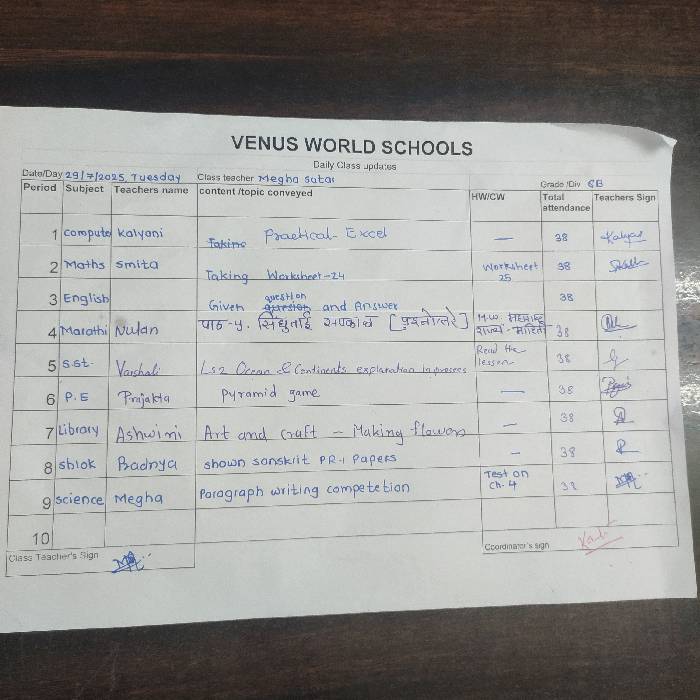 VENUS WORLD SCHOOLS
Daily Class updates
Date/Day 29/7/2025, Tuesday Class teacher Megha Sutar Grade /Div 6B
Period Subject Teachers name content /topic conveyed HW/CW Total attendance Teachers Sign
1 Compute Kalyani Taking Practical- Excel — 38
2 Maths Smita Taking Worksheet-24 Worksheet 25 38
3 English Given question question and Answer 38
4 Marathi Nutan पाठ-५. सिंधुताई सपकाळ [प्रश्नोत्तरे] H.W. महाराष्ट्र राज्य - माहिती 38
5 S.St. Varshali Ls2 Ocean & Continents explanation Read the lesson 38
6 P.E Prajakta Pyramid game — 38
7 Library Ashwini Art and Craft - Making flowers — 38
8 shlok Padnya shown sanskrit PR-1 Papers — 38
9 science Megha Paragraph writing competetion Test on Ch. 4 38
10
Class Teacher's Sign Coordinator's sign